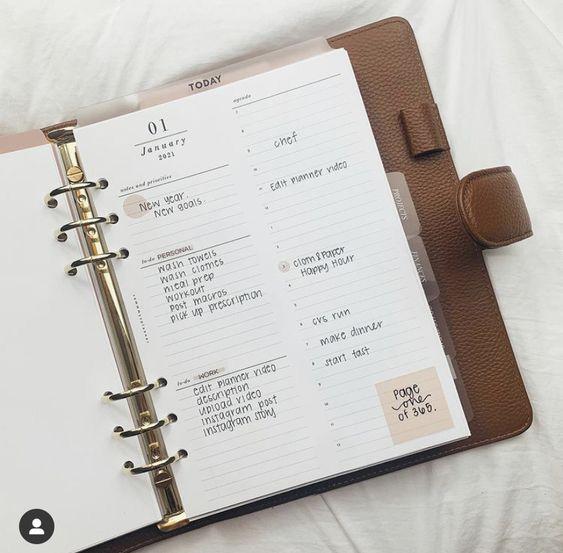 TODAY
01
January
2021
notes and priorities
New year.
New goals.
to-do PERSONAL
wash towels
wash clothes
meal prep
workout
post macros
pick up prescription
to-do WORK
edit planner video
description
upload video
instagram post
instagram story
agenda
chef
Edit planner video
cloth & paper
Happy Hour
cvs run
make dinner
start fast
page
one
of 365.
PROJECTS